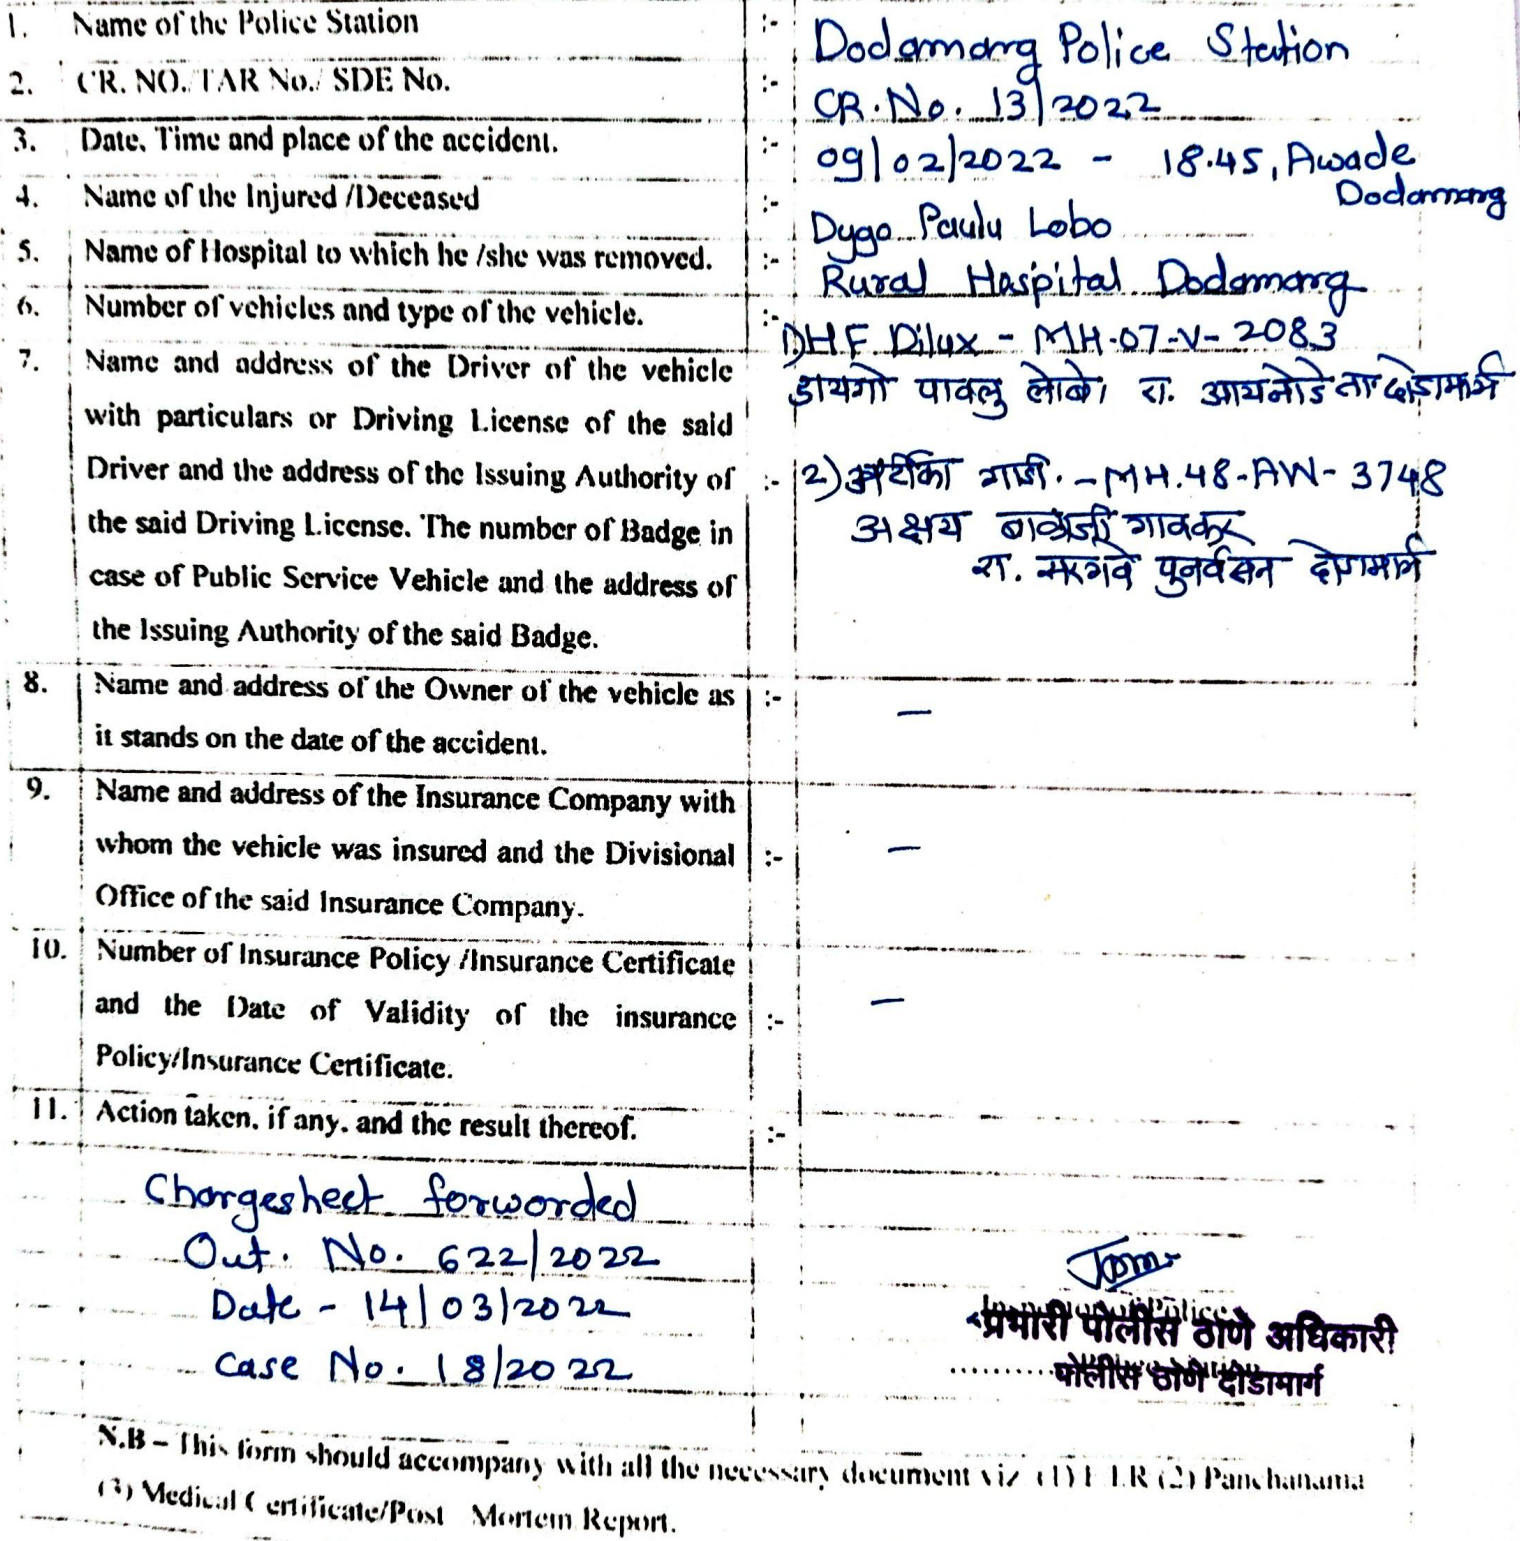 1. Name of the Police Station :- Dodamarg Police Station
2. CR. NO./TAR No./ SDE No. :- CR. No. 13/2022
3. Date, Time and place of the accident. :- 09/02/2022 - 18.45, Awade
Dodamarg
4. Name of the Injured /Deceased :- Dygo Paulu Lobo
5. Name of Hospital to which he /she was removed. :- Rural Haspital Dodamarg
6. Number of vehicles and type of the vehicle. :- 1) HF Dilux - MH-07-V-2083
7. Name and address of the Driver of the vehicle डायगो पावलु लोबो रा. आयनोडे ता दोडामार्ग
with particulars or Driving License of the said
Driver and the address of the Issuing Authority of :- 2) अर्टीका गाडी. - MH.48-AW-3748
the said Driving License. The number of Badge in अक्षय गावकर
case of Public Service Vehicle and the address of रा. पुनर्वसन दोडामार्ग
the Issuing Authority of the said Badge.
8. Name and address of the Owner of the vehicle as :- –
it stands on the date of the accident.
9. Name and address of the Insurance Company with
whom the vehicle was insured and the Divisional :- –
Office of the said Insurance Company.
10. Number of Insurance Policy /Insurance Certificate
and the Date of Validity of the insurance :- –
Policy/Insurance Certificate.
11. Action taken, if any, and the result thereof. :-
Chargesheet forworded
Out. No. 622/2022
Date - 14/03/2022
Case No. 18/2022
प्रभारी पोलीस ठाणे अधिकारी
पोलीस ठाणे दोडामार्ग
N.B – This form should accompany with all the necessary document viz (1) F.I.R (2) Panchanama
(3) Medical Certificate/Post Mortem Report.